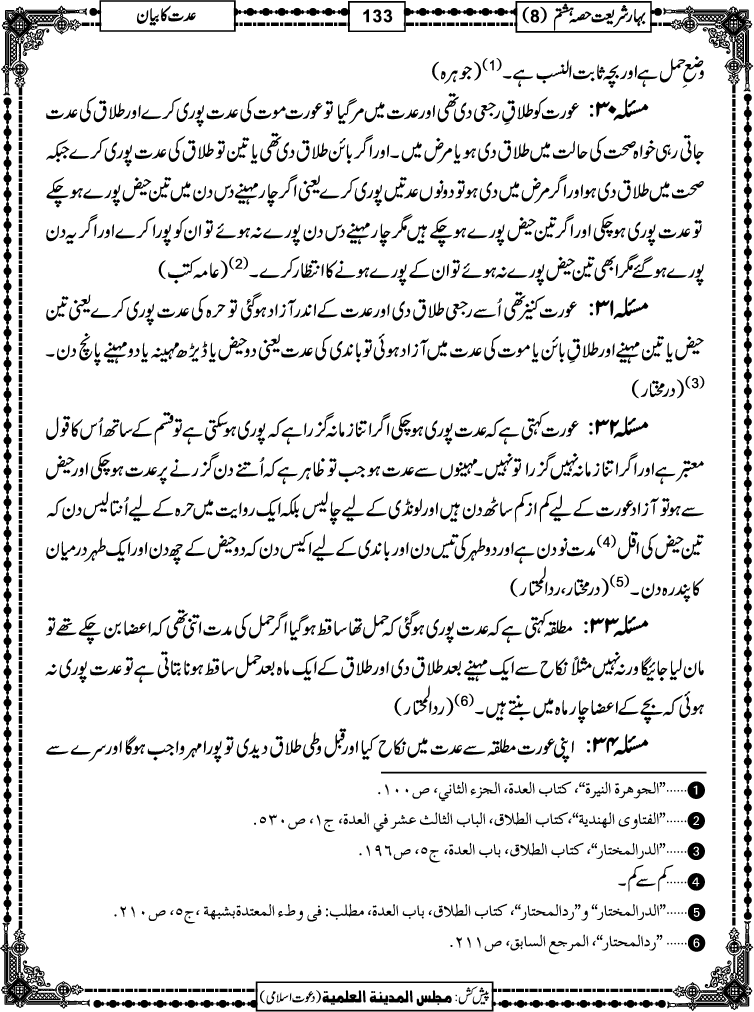 بہار شریعت حصہ ہشتم (8)
133
عدت کا بیان
وضعِ حمل ہے اور بچہ ثابت النسب ہے۔(1) (جوہرہ)
مسئلہ ۳۰: عورت کو طلاقِ رجعی دی تھی اور عدت میں مر گیا تو عورت موت کی عدت پوری کرے اور طلاق کی عدت
جاتی رہی خواہ صحت کی حالت میں طلاق دی ہو یا مرض میں۔ اور اگر بائن طلاق دی تھی یا تین تو طلاق کی عدت پوری کرے جبکہ
صحت میں طلاق دی ہو اور اگر مرض میں دی ہو تو دونوں عدتیں پوری کرے یعنی اگر چار مہینے دس دن میں تین حیض پورے ہوچکے
تو عدت پوری ہوچکی اور اگر تین حیض پورے ہوچکے ہیں مگر چار مہینے دس دن پورے نہ ہوئے تو ان کو پورا کرے اور اگر یہ دن
پورے ہوگئے مگر ابھی تین حیض پورے نہ ہوئے تو ان کے پورے ہونے کا انتظار کرے۔(2) (عامہ کتب)
مسئلہ ۳۱: عورت کنیز تھی اُسے رجعی طلاق دی اور عدت کے اندر آزاد ہوگئی تو حرہ کی عدت پوری کرے یعنی تین
حیض یا تین مہینے اور طلاقِ بائن یا موت کی عدت میں آزاد ہوئی تو باندی کی عدت یعنی دو حیض یا ڈیڑھ مہینہ یا دو مہینے پانچ دن۔
(3) (درمختار)
مسئلہ ۳۲: عورت کہتی ہے کہ عدت پوری ہوچکی اگر اتنا زمانہ گزرا ہے کہ پوری ہوسکتی ہے تو قسم کے ساتھ اُس کا قول
معتبر ہے اور اگر اتنا زمانہ نہیں گزرا تو نہیں۔ مہینوں سے عدت ہو جب تو ظاہر ہے کہ اُتنے دن گزرنے پر عدت ہوچکی اور حیض
سے ہو تو آزاد عورت کے لیے کم از کم ساٹھ دن ہیں اور لونڈی کے لیے چالیس بلکہ ایک روایت میں حرہ کے لیے اُنتالیس دن کہ
تین حیض کی اقل (4) مدت نو دن ہے اور دو طہر کی تیس دن اور باندی کے لیے اکیس دن کہ دو حیض کے چھ دن اور ایک طہر درمیان
کا پندرہ دن۔(5) (درمختار، ردالمحتار)
مسئلہ ۳۳: مطلقہ کہتی ہے کہ عدت پوری ہوگئی کہ حمل تھا ساقط ہوگیا اگر حمل کی مدت اتنی تھی کہ اعضا بن چکے تھے تو
مان لیا جائیگا ورنہ نہیں مثلاً نکاح سے ایک مہینے بعد طلاق دی اور طلاق کے ایک ماہ بعد حمل ساقط ہونا بتاتی ہے تو عدت پوری نہ
ہوئی کہ بچے کے اعضا چار ماہ میں بنتے ہیں۔(6) (ردالمحتار)
مسئلہ ۳۴: اپنی عورت مطلقہ سے عدت میں نکاح کیا اور قبل وطی طلاق دیدی تو پورا مہر واجب ہوگا اور سرے سے
1 ......"الجوهرة النيرة"، كتاب العدة، الجزء الثاني، ص ۱۰۰.
2 ......"الفتاوى الهندية"، كتاب الطلاق، الباب الثالث عشر في العدة، ج۱، ص ۵۳۰.
3 ......"الدرالمختار"، كتاب الطلاق، باب العدة، ج۵، ص۱۹۶.
4 ......کم سے کم۔
5 ......"الدرالمختار" و"ردالمحتار"، كتاب الطلاق، باب العدة، مطلب: فى وطء المعتدة بشبهة، ج۵، ص ۲۱۰.
6 ...... "ردالمحتار"، المرجع السابق، ص۲۱۱.
پیش کش: مجلس المدينة العلمية (دعوتِ اسلامی)